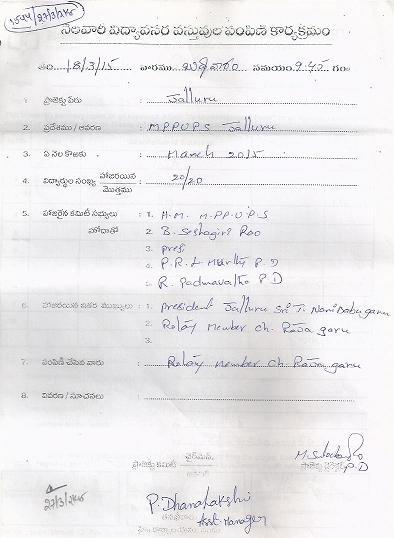 27/3/15
నెలవారి విద్యావసర వస్తువుల పంపిణి కార్యక్రమం
తేది 18/3/15 వారము బుధవారం సమయం 9.45 గం॥
1. ప్రాజెక్టు పేరు : Jalluru
2. ప్రదేశము / ఆవరణ : M.P.P.U.P.S Jalluru
3. ఏ నెల కొఱకు : March 2015
4. విద్యార్థుల సంఖ్య హాజరయిన / మొత్తము : 20/20
5. హాజరైన కమిటీ సభ్యులు : 1. H.M. M.P.P.U.P.S
హోదాతో 2. B. Seshagiri Rao
3.
4. P.R.L Murthy P.D
5. R. Padmavathi P D
6. హాజరయిన ఇతర ముఖ్యులు : 1. President Jalluru Sri T. Nani Babu garu
2. Rotary Member Ch. Raja garu
3.
7. పంపిణి చేసిన వారు : Rotary Member Ch. Raja garu
8. వివరణ / సూచనలు :
ప్రాజెక్టు కమిటీ ఛైర్మన్ ప్రాజెక్టు డైరెక్టర్ P.D
27/3/15
P. Dhanalakshmi
Asst. Manager